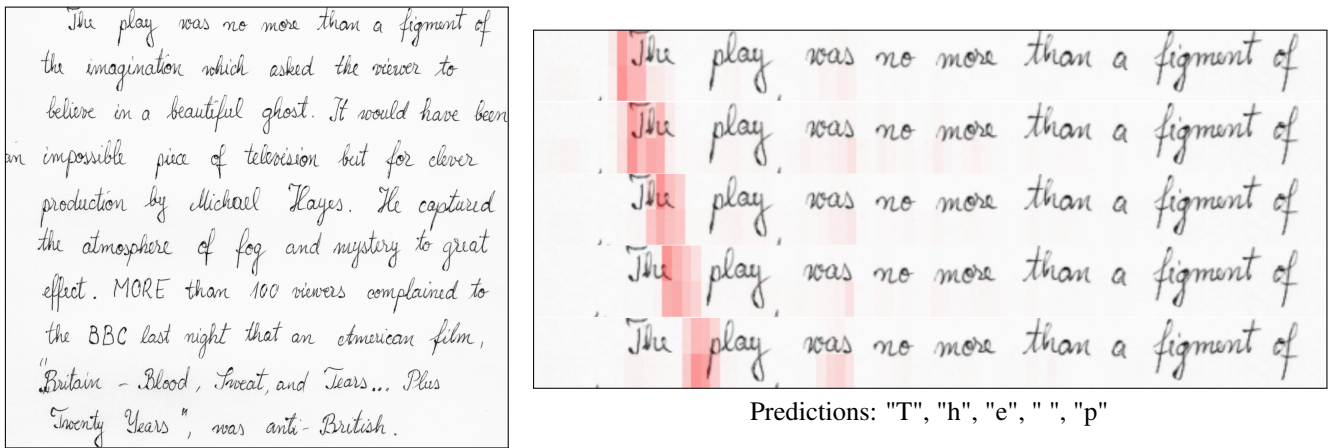 The play was no more than a figment of
the imagination which asked the viewer to
believe in a beautiful ghost. It would have been
an impossible piece of television but for clever
production by Michael Hayes. He captured
the atmosphere of fog and mystery to great
effect. MORE than 100 viewers complained to
the BBC last night that an American film,
"Britain - Blood, Sweat, and Tears... Plus
Twenty Years", was anti-British.
The play was no more than a figment of
The play was no more than a figment of
The play was no more than a figment of
The play was no more than a figment of
The play was no more than a figment of
Predictions: "T", "h", "e", " ", "p"